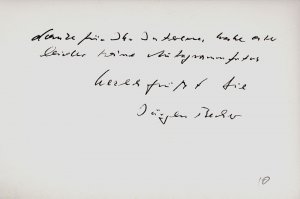 Danke für Ihr Interesse, habe aber
leider keine Autogrammfotos
herzlich grüßt Sie
Jürgen Becker